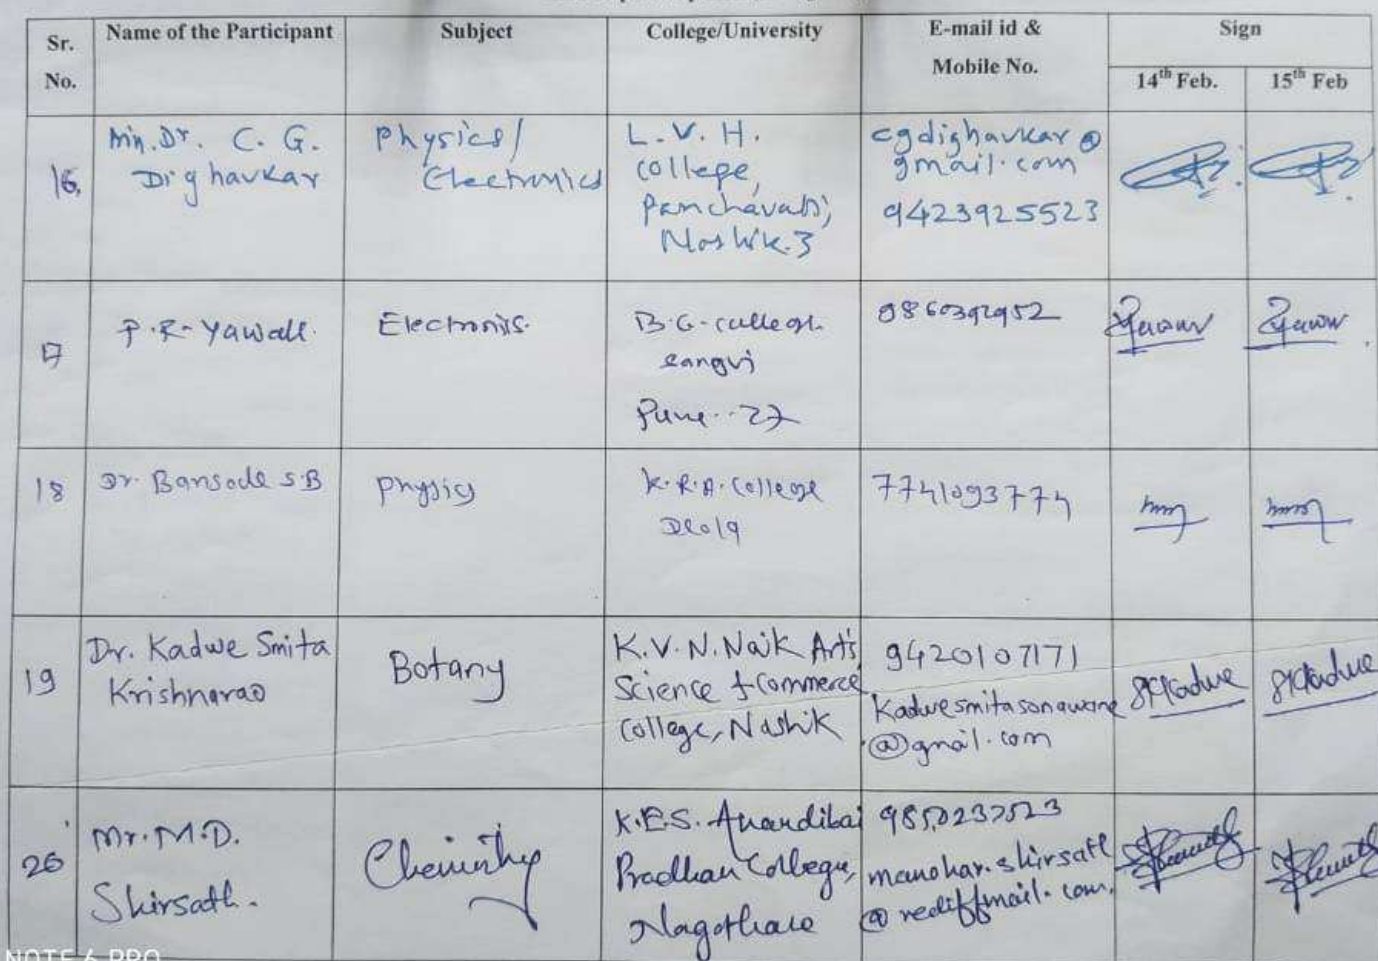 Sr. No.
Name of the Participant
Subject
College/University
E-mail id & Mobile No.
Sign
14th Feb.
15th Feb
16.
Dr. C. G.
Dighavkar
Physics/
Electronics
L. V. H.
College,
Panchavati,
Nashik.3
cgdighavkar@
gmail.com
9423925523
17
P.R. Yawale.
Electronics.
B.G. College
Sangvi
Pune - 27
9860392952
18
Dr. Bansode S.B
Physics
K.R.A. College
Deola
7741093774
19
Dr. Kadwe Smita
Krishnarao
Botany
K.V.N. Naik Art's
Science & Commerce
College, Nashik
9420107171
Kadwesmitasonawane
@gmail.com
SKKadwe
SKKadwe
20
Mr. M.D.
Shirsath.
Chemistry
K.E.S. Anandibai
Pradhan College,
Nagothane
9850237523
manohar.shirsath
@rediffmail.com.
NOTE 6 PRO